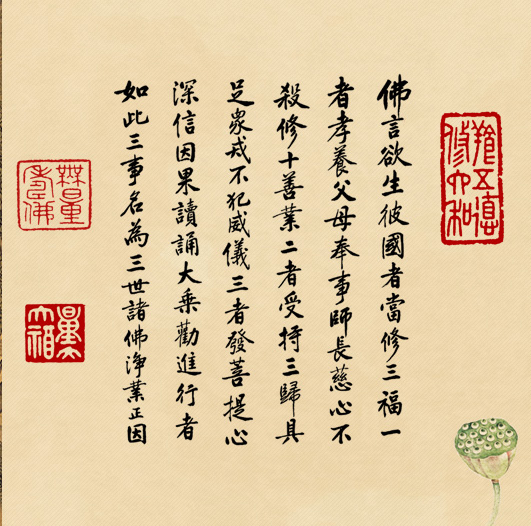 五德
修六和
佛言欲生彼國者當修三福一
者孝養父母奉事師長慈心不
殺修十善業二者受持三歸具
足眾戒不犯威儀三者發菩提心
深信因果讀誦大乘勸進行者
如此三事名為三世諸佛淨業正因
無量
壽佛